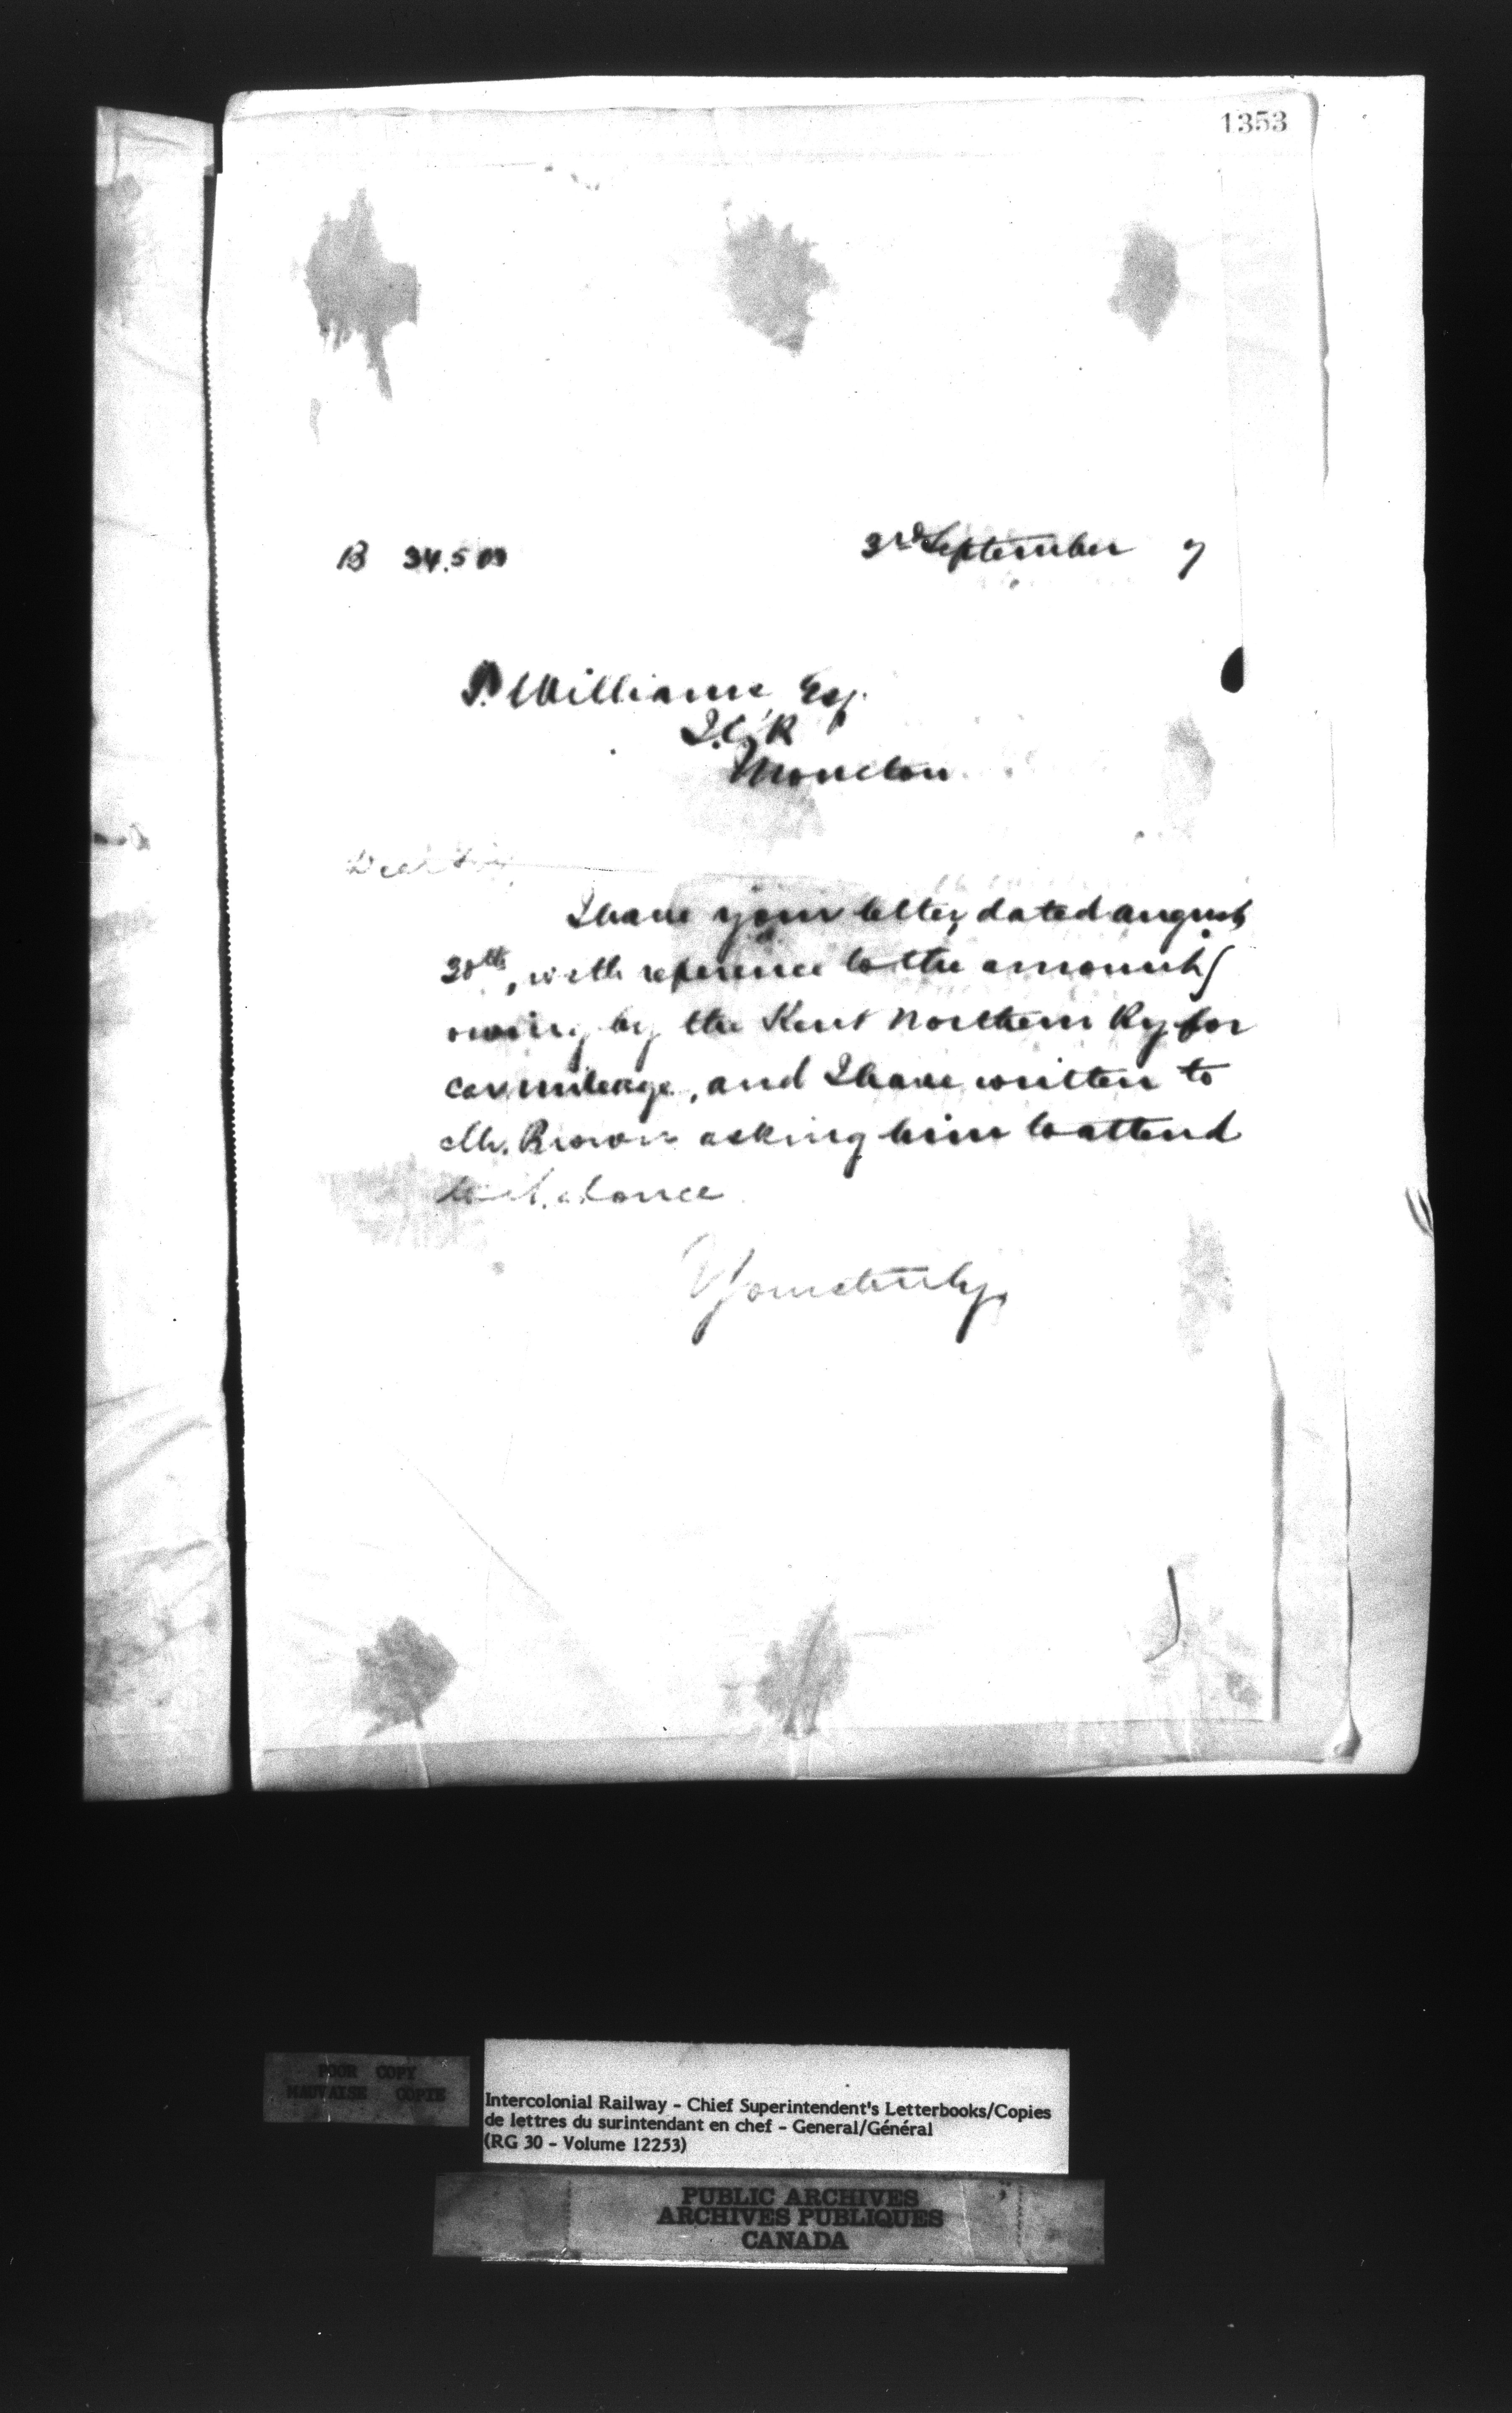 1353
B 34.509 3rd September 7
T. Williams, Esq.
I.C.R
Moncton
Dear Sir,
I have your letter, dated August
30th, with reference to the amount
owing by the Kent Northern Ry for
car mileage, and I have written to
Mr. Brown asking him to attend
to it at once
Yours truly,
POOR COPY
MAUVAISE COPIE
Intercolonial Railway - Chief Superintendent's Letterbooks/Copies
de lettres du surintendant en chef - General/Général
(RG 30 - Volume 12253)
PUBLIC ARCHIVES
ARCHIVES PUBLIQUES
CANADA